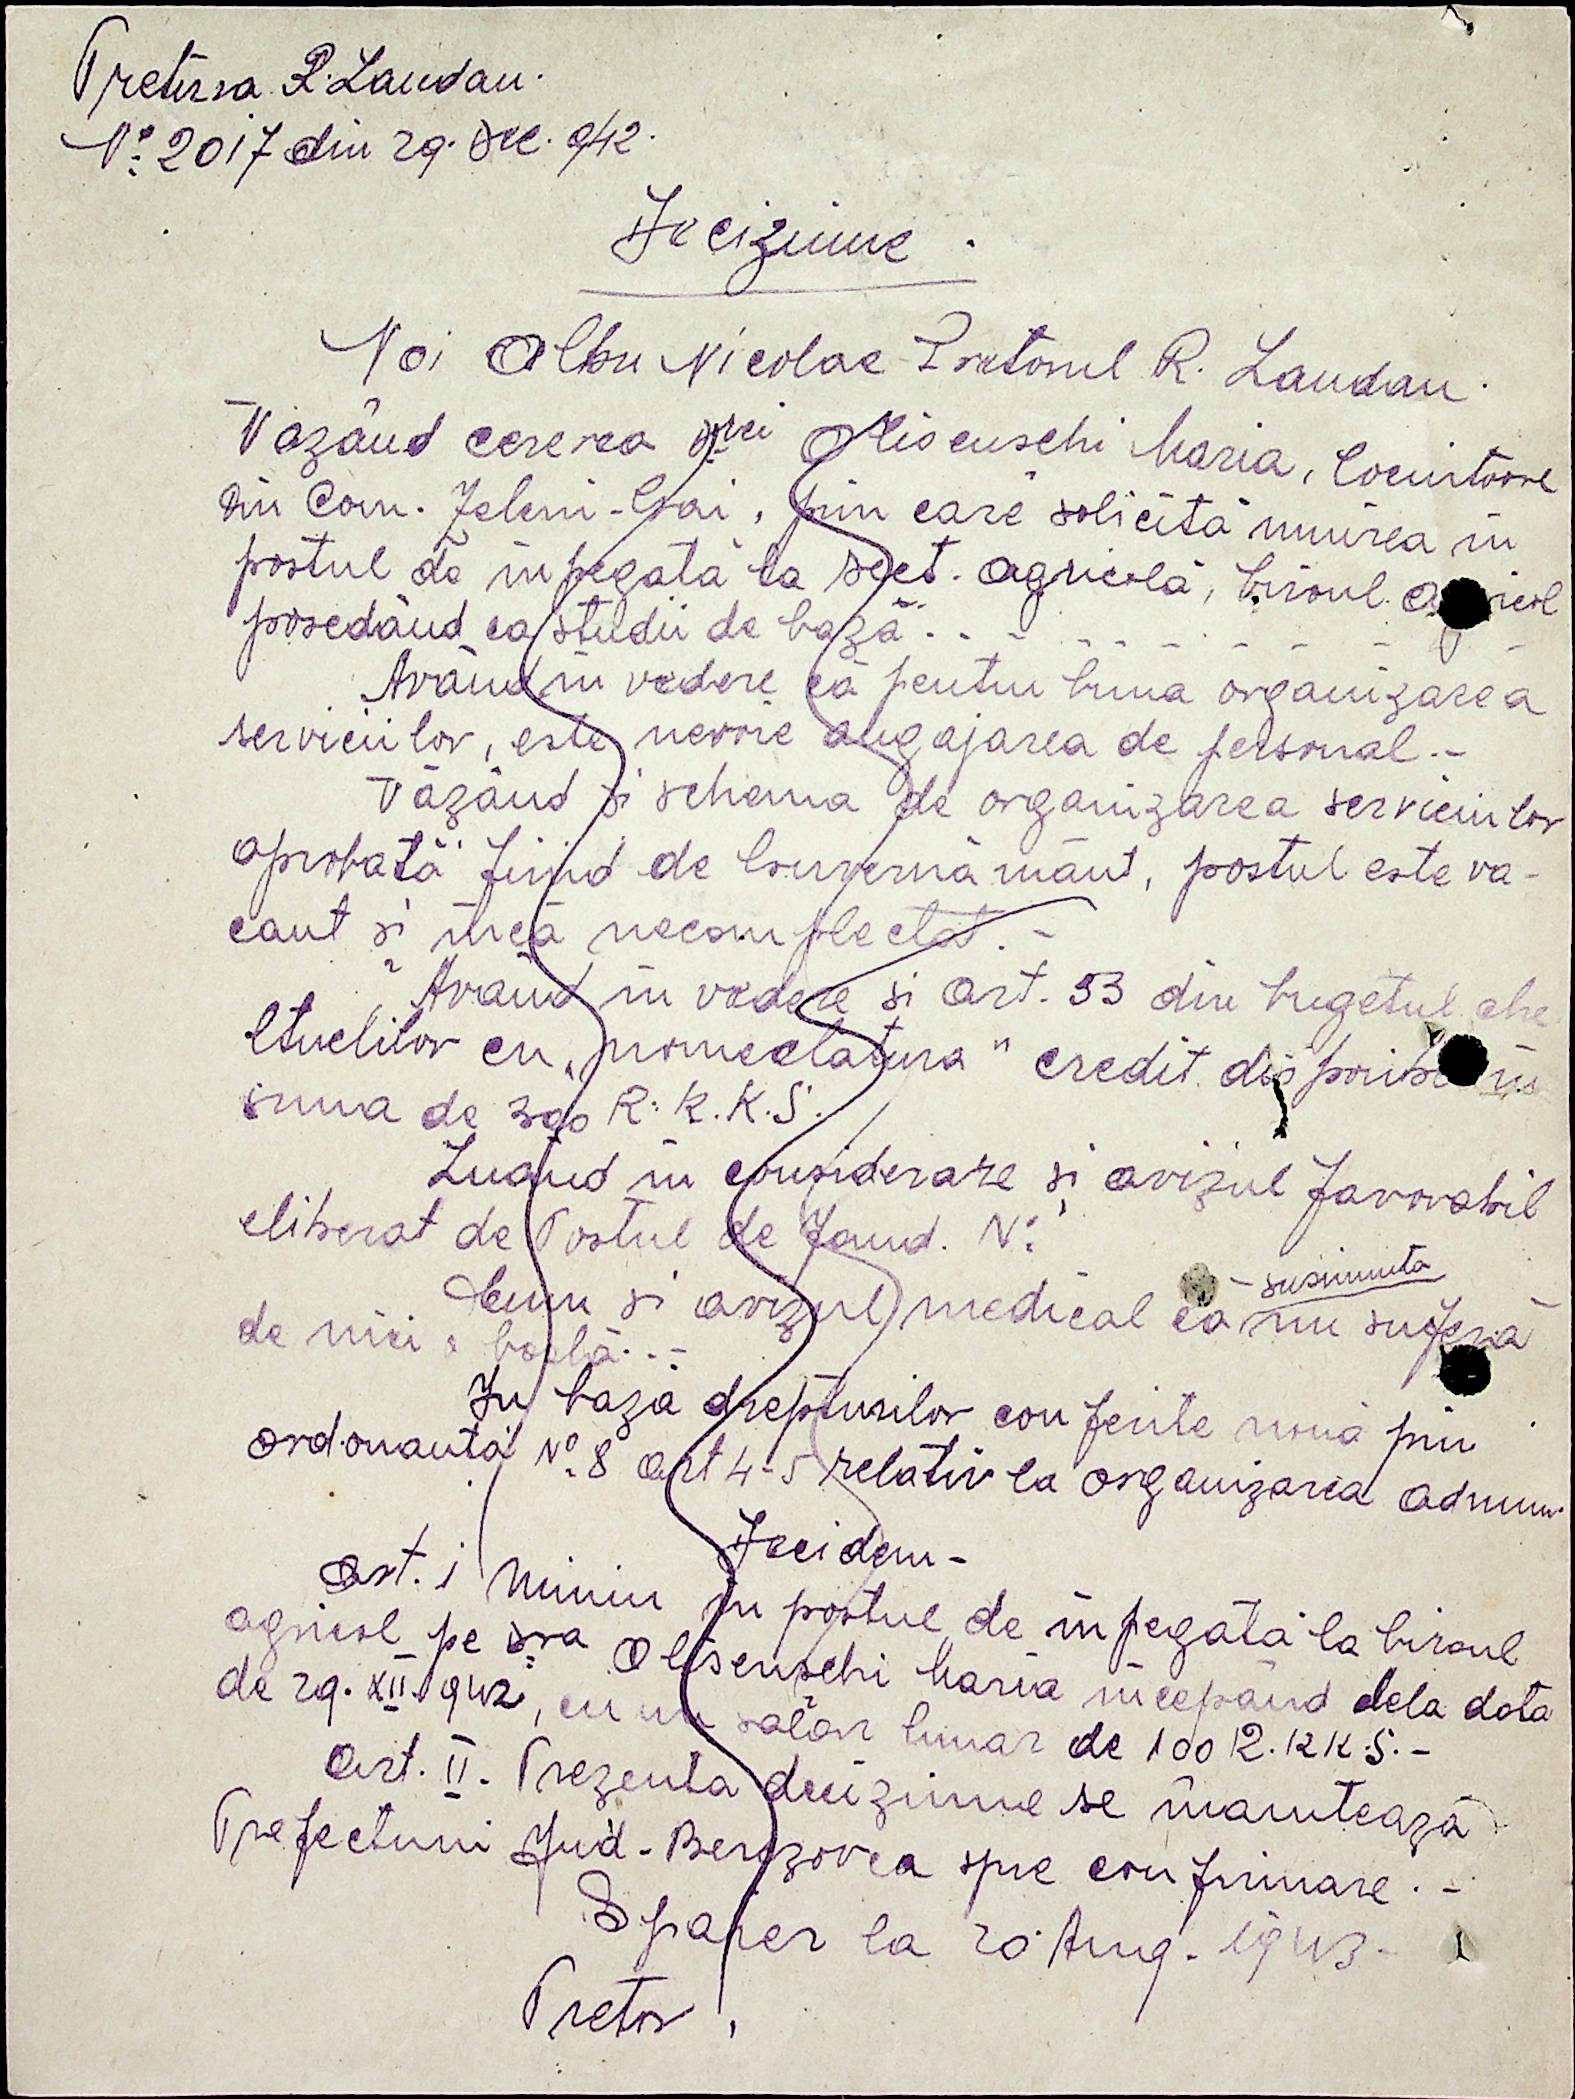 Pretura R. Landau.
No. 2017 din 29. Dec. 942.
Deciziune.
Noi Albu Nicolae Pretorul R. Landau.
Văzând cererea D-rei Olisenschi Maria, locuitoare
din Com. Zeleni-Gai, prin care solicită numirea în
postul de inpegată la sect. agricolă, biroul agricol
posedând ca studii de bază . . - - - - - - - - -
Având în vedere că pentru buna organizarea
serviciilor, este nevoie angajarea de personal.-
Văzând și schema de organizarea serviciilor
aprobată fiind de Guvernământ, postul este va-
cant și încă necomplectat.-
Având în vedere și art. 53 din bugetul che
ltuelilor cu „nomeclatura" credit disponibil în
suma de 300 R.K.K.S.
Luând în considerare și avizul favorabil
eliberat de Postul de Jand. No.
Cum și avizul medical că - susnumita nu suferă
de nici o boală..-
In baza drepturilor conferite nouă prin
ordonanta No. 8 art 4-5 relativ la organizarea admin.
Decidem-
Art. i Numim in postul de inpegată la biroul
agricol pe D-ra Olisenschi Maria incepând dela data
de 29. XII. 942, cu un salar lunar de 100 R.K K.S.-
Art. II. Prezenta deciziune se inaintează
Prefecturii Jud- Berezovca spre confirmare.-
Speier la 20 Aug. 1943-
Pretor,